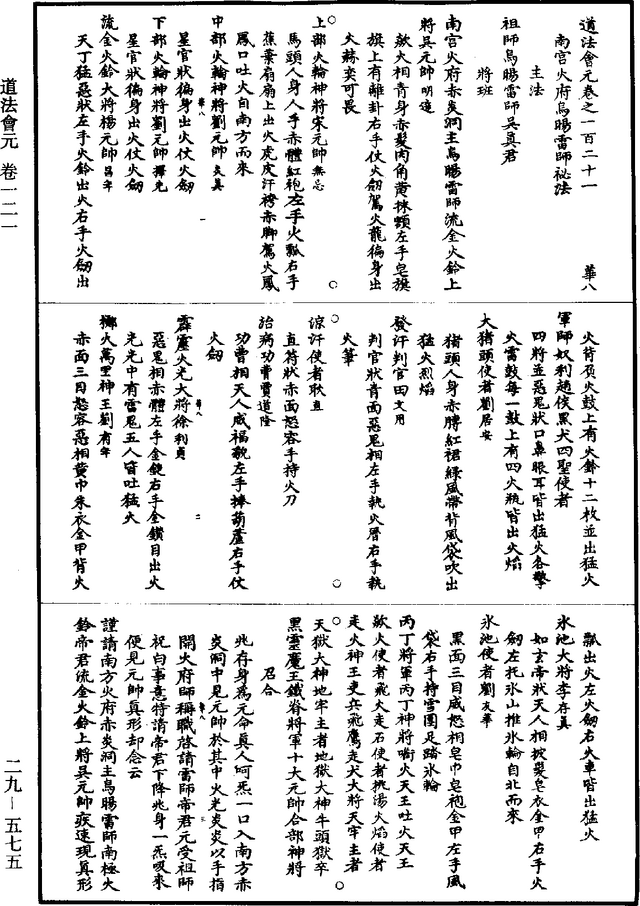 道法會元卷之一百二十一　華八
南宮火府烏暘雷師祕法
主法
祖師烏暘雷師吳真君
將班
南宮火府赤炎洞主烏暘雷師流金火鈴上
將吳元帥明遠
歘火相青身赤髮肉角黄抹顖左手皂旗
旗上有離卦右手仗火劒駕火龍徧身出
火赫奕可畏
上部火輪神將宋元帥無忌
馬頭人身人手赤體紅袍左手火瓢右手
蕉葉扇扇上出火虎皮汗袴赤脚駕火鳳
鳳口吐火自南方而來
中部火輪神將劉元帥
星官狀徧身出火仗火劒
下部火輪神將劉元帥
星官狀徧身出火仗火劒
流金火鈴大將楊元帥
天丁猛惡狀左手火鈴出火右手火劒出
火背負火鼓上有火鈴十二枚並出猛火
軍師奴利趙侯黑犬四聖使者
四將並惡鬼狀口鼻眼耳皆出猛火各擎
火雷鼓每一鼓上有四火瓶皆出火焰
大猪頭使者劉居安
猪頭人身赤膊紅裙綠風帶背風袋吹出
猛火烈焰
發汗判官田文用
判官狀青面惡鬼相左手執火曆右手執
火筆
涼汗使者耿直
直符狀赤面怒容手持火刀
治病功曹賈道隆
功曹相天人威福貌左手捧葫蘆右手仗
火劒
霹靂火光大將徐利貞
惡鬼相赤體左手金鎚右手金鑽目出火
光光中有雷鬼五人皆吐猛火
擲火萬里神王劉有年
赤面三目怒容惡相黄巾朱衣金甲背火
瓢出火左火劒右火車皆出猛火
氷池大將李存真
如玄帝狀天人相披髮皂衣金甲右手火
劒左托氷山推氷輪自北而來
氷池使者劉友華
黑面三目威怒相皂巾皂袍金甲左手風
袋右手持雪團足踏氷輪
丙丁將軍丙丁神將嚙火天王吐火天王
歘火使者飛火走石使者挑湯火焰使者
走火神王吏兵飛鷹走犬大將天牢主者
天獄大神地牢主者地獄大神牛頭獄卒
黑靈魔王鐵脊將軍十大元帥合部神將
召合
兆存身爲元命真人呵炁一口入南方赤
炎洞中見元帥於其中火光炎炎以手指
開火府師稱職啓請雷師帝君元受祖師
祝白事意特請帝君下降兆身一炁吸來
便見元帥真形却念云
謹請南方火府赤炎洞主烏暘雷師南極火
鈴帝君流金火鈴上將吳元帥疾速現真形
道法會元　卷一二一
二九－五七五